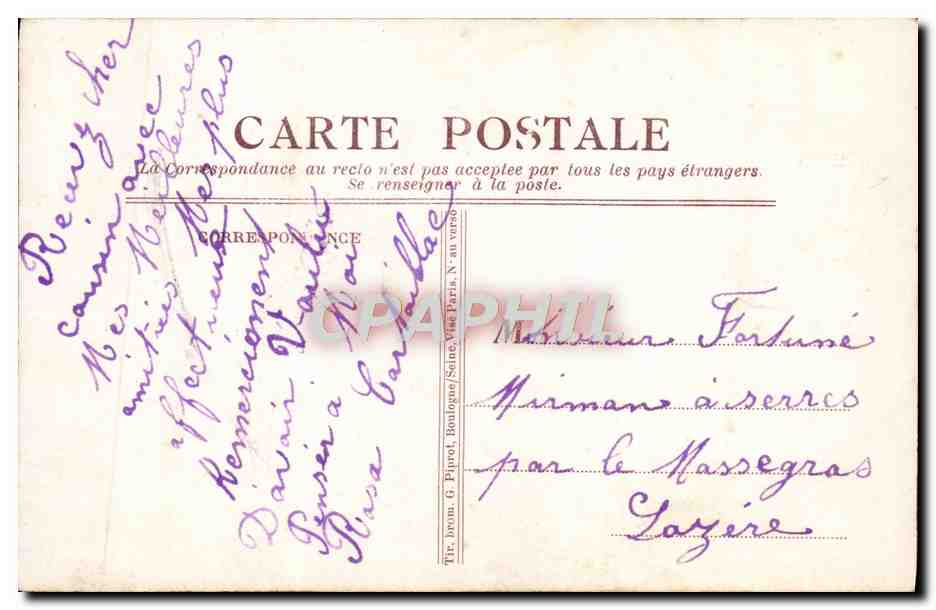 CARTE POSTALE
La Correspondance au recto n'est pas acceptee par tous les pays étrangers.
Se renseigner à la poste.
CORRESPONDANCE
Recevez cher
cousin avec
Mes Meilleures
amitiés Mes plus
affectueux
Remerciement
Davoir Voulu
Penser a Moi
Rosa Cartaillac
Tir. brom. G. Piprot, Boulogne/Seine, Visé Paris, N° au verso
Monsieur Fortuné
Mirman à serres
par le Massegros
Lozére
CPAPHIL